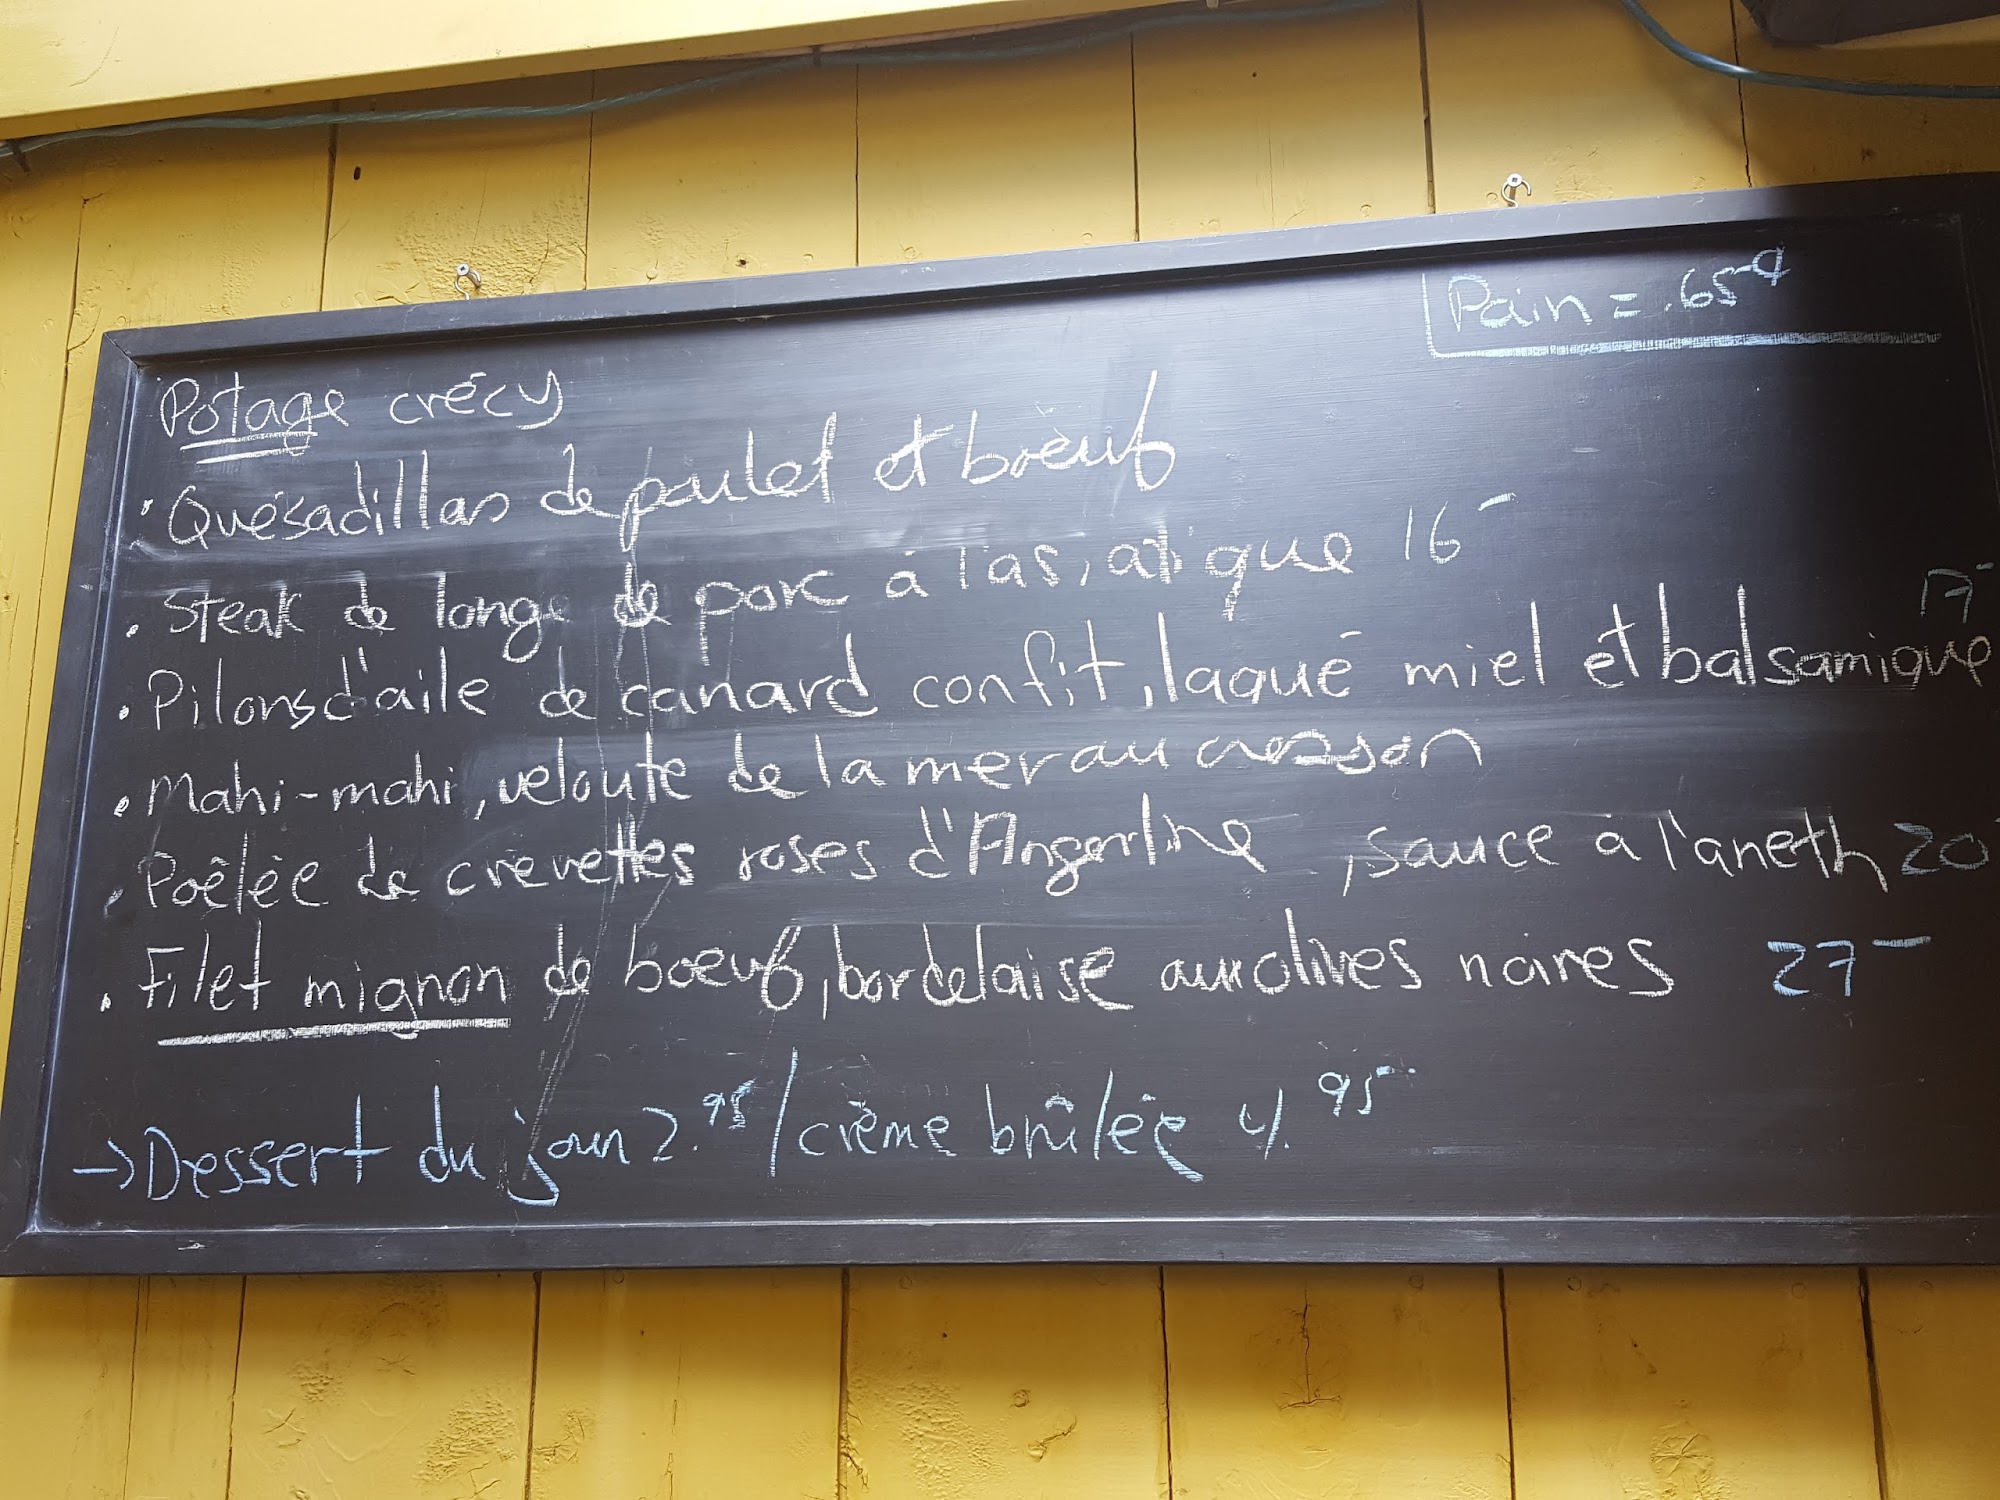 Pain = .65¢
Potage crécy
• Quésadillas de poulet et boeuf
• Steak de longe de porc à l'as, at que 16-
• Pilons d'aile de canard confit, laqué miel et balsamique 17-
• Mahi-mahi, velouté de la mer au cresson
• Poêlée de crevettes roses d'Argentine, sauce à l'aneth 20
• Filet mignon de boeuf, bordelaise aux olives noires 27-
→ Dessert du jour 2.95 / crème brûlée 4.95